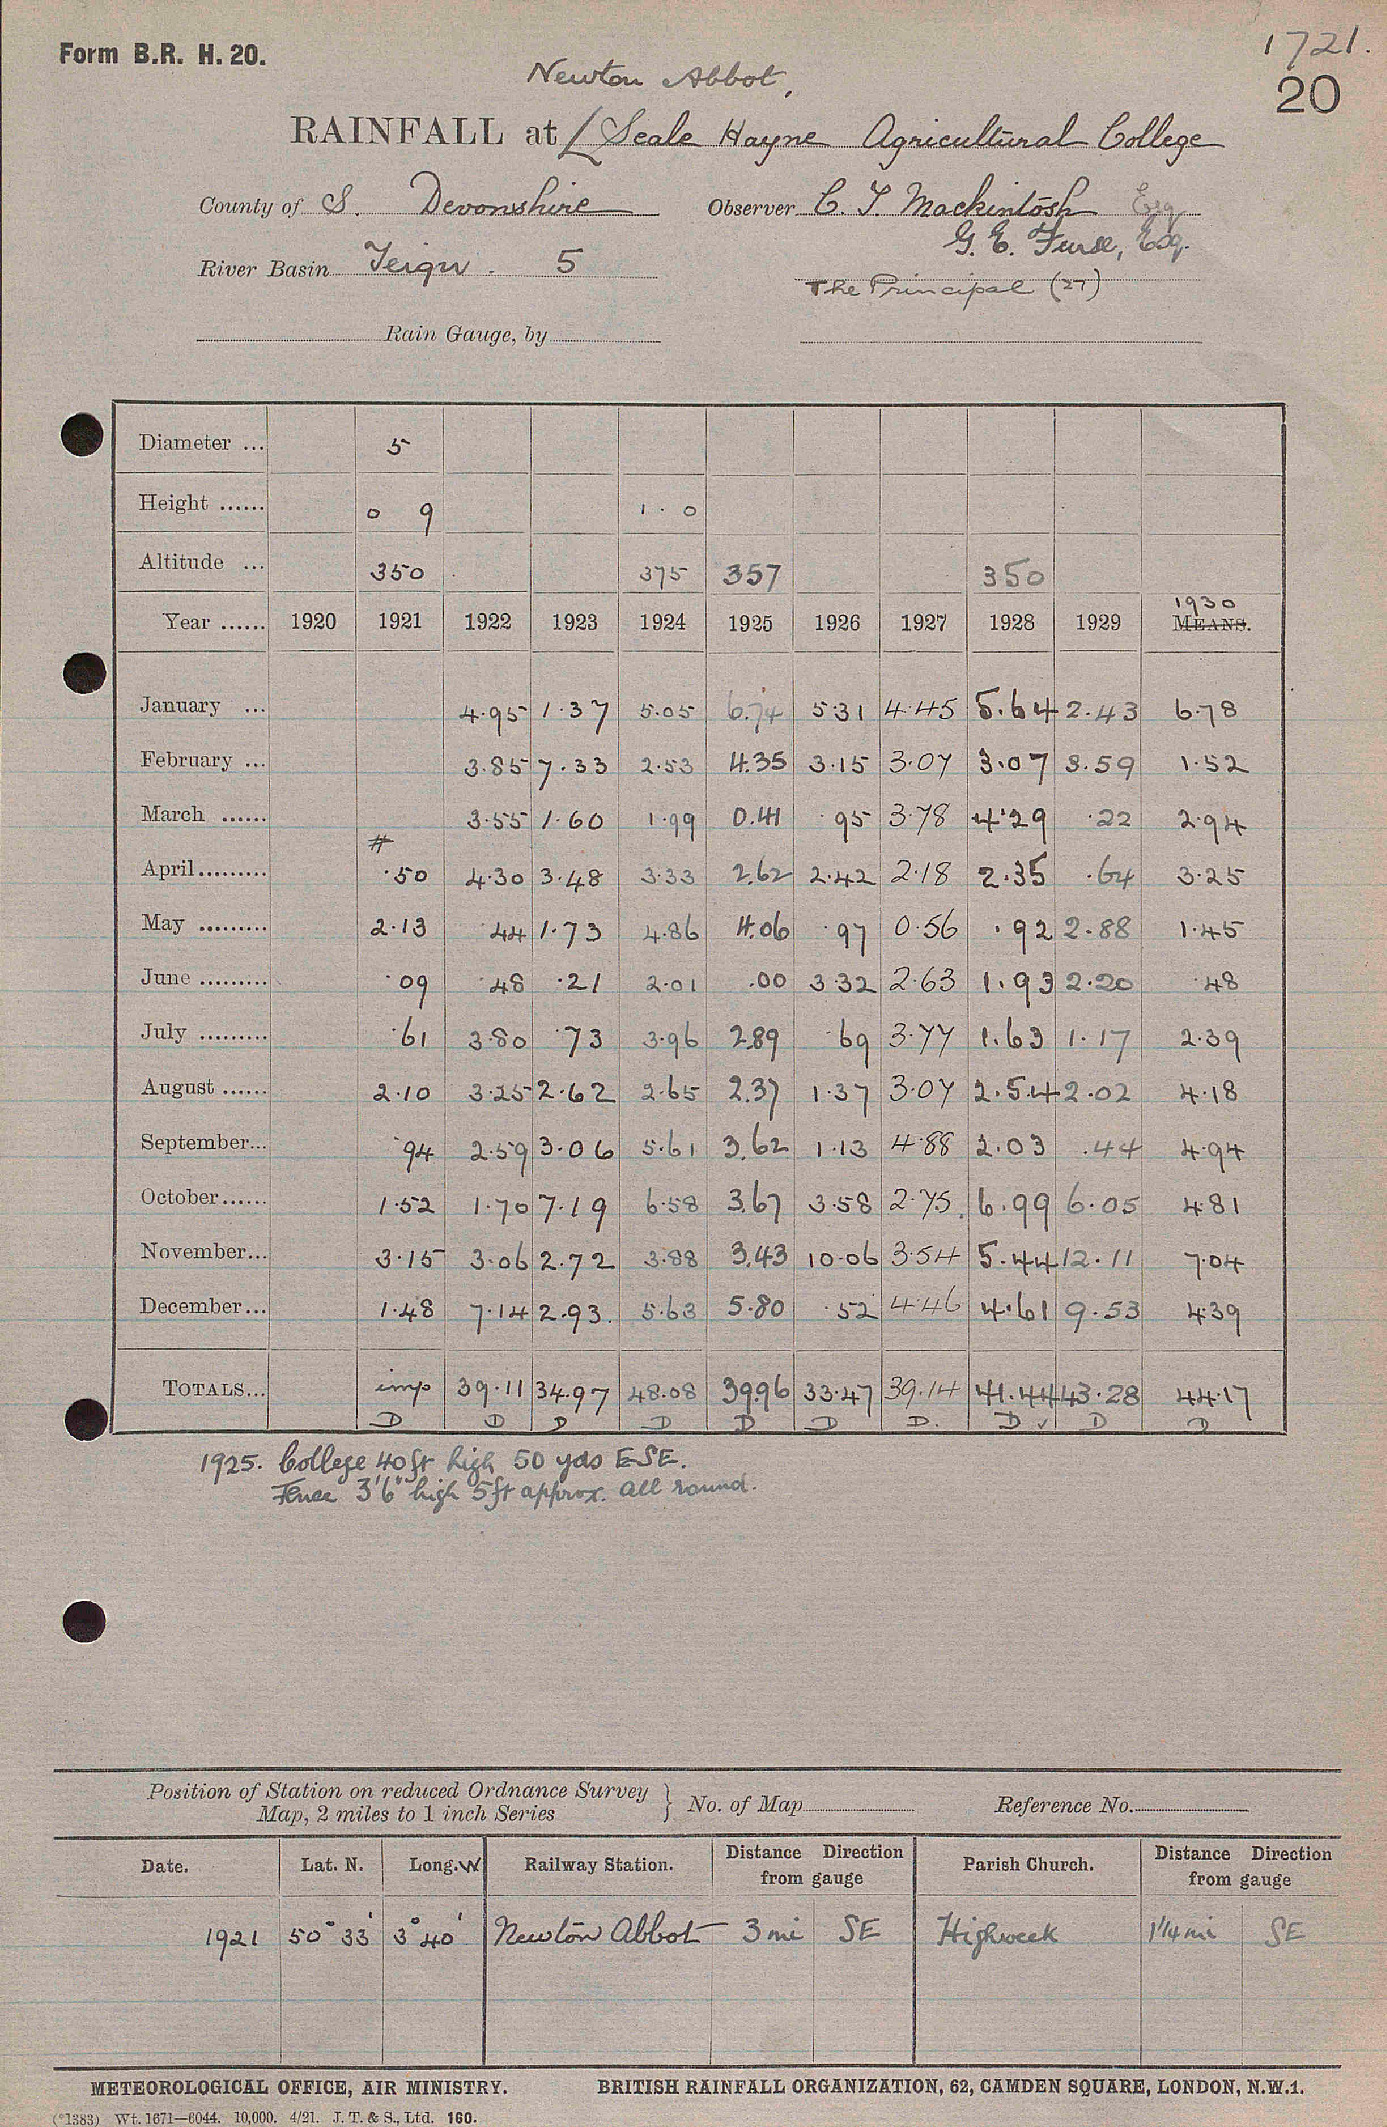 Form B.R. H. 20.
1721.
20
Newton Abbot,
RAINFALL at Seale Hayne Agricultural College
County of S. Devonshire Observer C. T. Mackintosh Esq
G. E. Furse, Esq.
River Basin Teign. 5
The Principal (27)
Rain Gauge, by
Diameter ... 5
Height ...... 0 9 1 . 0
Altitude ... 350 375 357 350
1930
Year ...... 1920 1921 1922 1923 1924 1925 1926 1927 1928 1929 MEANS.
January ... 4.95 1.37 5.05 6.74 5.31 4.45 5.64 2.43 6.78
February ... 3.85 7.33 2.53 4.35 3.15 3.07 3.07 3.59 1.52
March ...... 3.55 1.60 1.99 0.41 .95 3.78 4.29 .22 2.94
#
April ......... .50 4.30 3.48 3.33 2.62 2.42 2.18 2.35 .64 3.25
May ......... 2.13 .44 1.73 4.86 4.06 .97 0.56 .92 2.88 1.45
June ......... .09 .48 .21 2.01 .00 3.32 2.63 1.93 2.20 .48
July ......... .61 3.80 .73 3.96 2.89 .69 3.77 1.63 1.17 2.39
August ...... 2.10 3.25 2.62 2.65 2.37 1.37 3.07 2.54 2.02 4.18
September... .94 2.59 3.06 5.61 3.62 1.13 4.88 2.03 .44 4.94
October...... 1.52 1.70 7.19 6.58 3.67 3.58 2.75 6.99 6.05 4.81
November... 3.15 3.06 2.72 3.88 3.43 10.06 3.54 5.44 12.11 7.04
December... 1.48 7.14 2.93 5.63 5.80 .52 4.46 4.61 9.53 4.39
TOTALS... imp 39.11 34.97 48.08 39.96 33.47 39.14 41.44 43.28 44.17
D D D D D D D. D ✓ D D
1925. College 40ft high 50 yds ESE.
Fence 3'6" high 5ft approx. all round.
Position of Station on reduced Ordnance Survey
Map, 2 miles to 1 inch Series } No. of Map Reference No.
Date. Lat. N. Long. W Railway Station. Distance Direction from gauge Parish Church. Distance Direction from gauge
1921 50° 33' 3° 40' Newton Abbot 3 mi SE Highweek 1¼ mi SE
METEOROLOGICAL OFFICE, AIR MINISTRY. BRITISH RAINFALL ORGANIZATION, 62, CAMDEN SQUARE, LONDON, N.W.1.
(*1383) Wt. 1671—6044. 10,000. 4/21. J. T. & S., Ltd. 160.